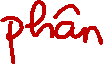 phân